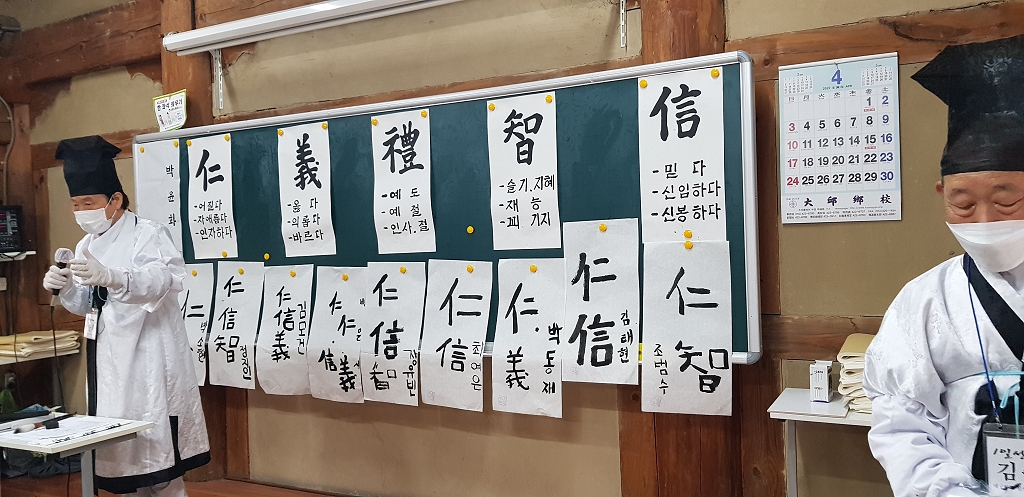 박윤화
仁
-어질다
-자애롭다
-인자하다
義
-옳다
-의롭다
-바르다
禮
-예 도
-예 절
-인사.절
智
-슬기.지혜
-재 능
-꾀 기지
信
-믿 다
-신임하다
-신봉하다
仁
仁
信
智
仁
信
義
김모건
仁
仁
信
義
仁
信
智
仁
信
최여은
仁
義
박동재
仁
信
김태현
仁
智
조범수
4
日 月 火 水 木 金 土
1 2
3 4 5 6 7 8 9
10 11 12 13 14 15 16
17 18 19 20 21 22 23
24 25 26 27 28 29 30
大邱鄕校
김